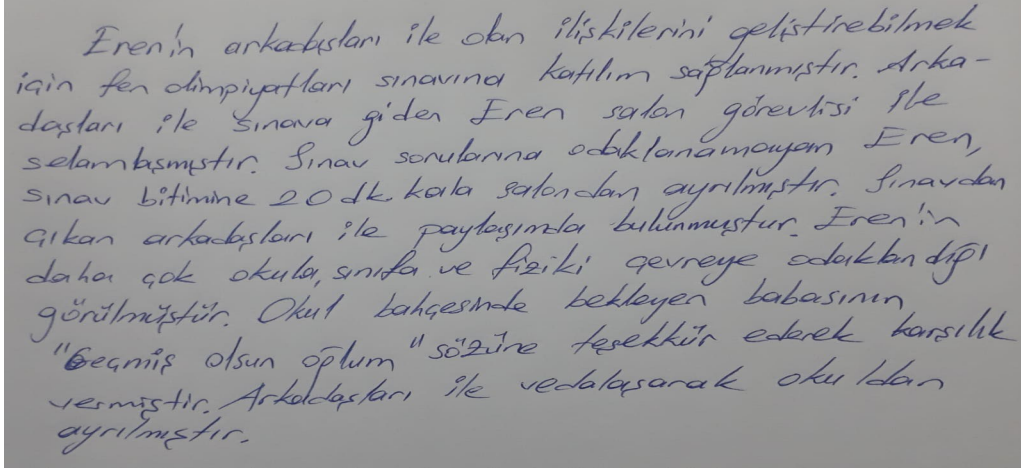 Eren'in arkadaşları ile olan ilişkilerini geliştirebilmek
için fen olimpiyatları sınavına katılım sağlanmıştır. Arka-
daşları ile sınava giden Eren salon görevlisi ile
selamlaşmıştır. Sınav sorularına odaklanamayan Eren,
sınav bitimine 20 dk. kala salondan ayrılmıştır. Sınavdan
çıkan arkadaşları ile paylaşımda bulunmuştur. Eren'in
daha çok okula, sınıfa ve fiziki çevreye odaklandığı
görülmüştür. Okul bahçesinde bekleyen babasının
"Geçmiş olsun oğlum" sözüne teşekkür ederek karşılık
vermiştir. Arkadaşları ile vedalaşarak okuldan
ayrılmıştır.